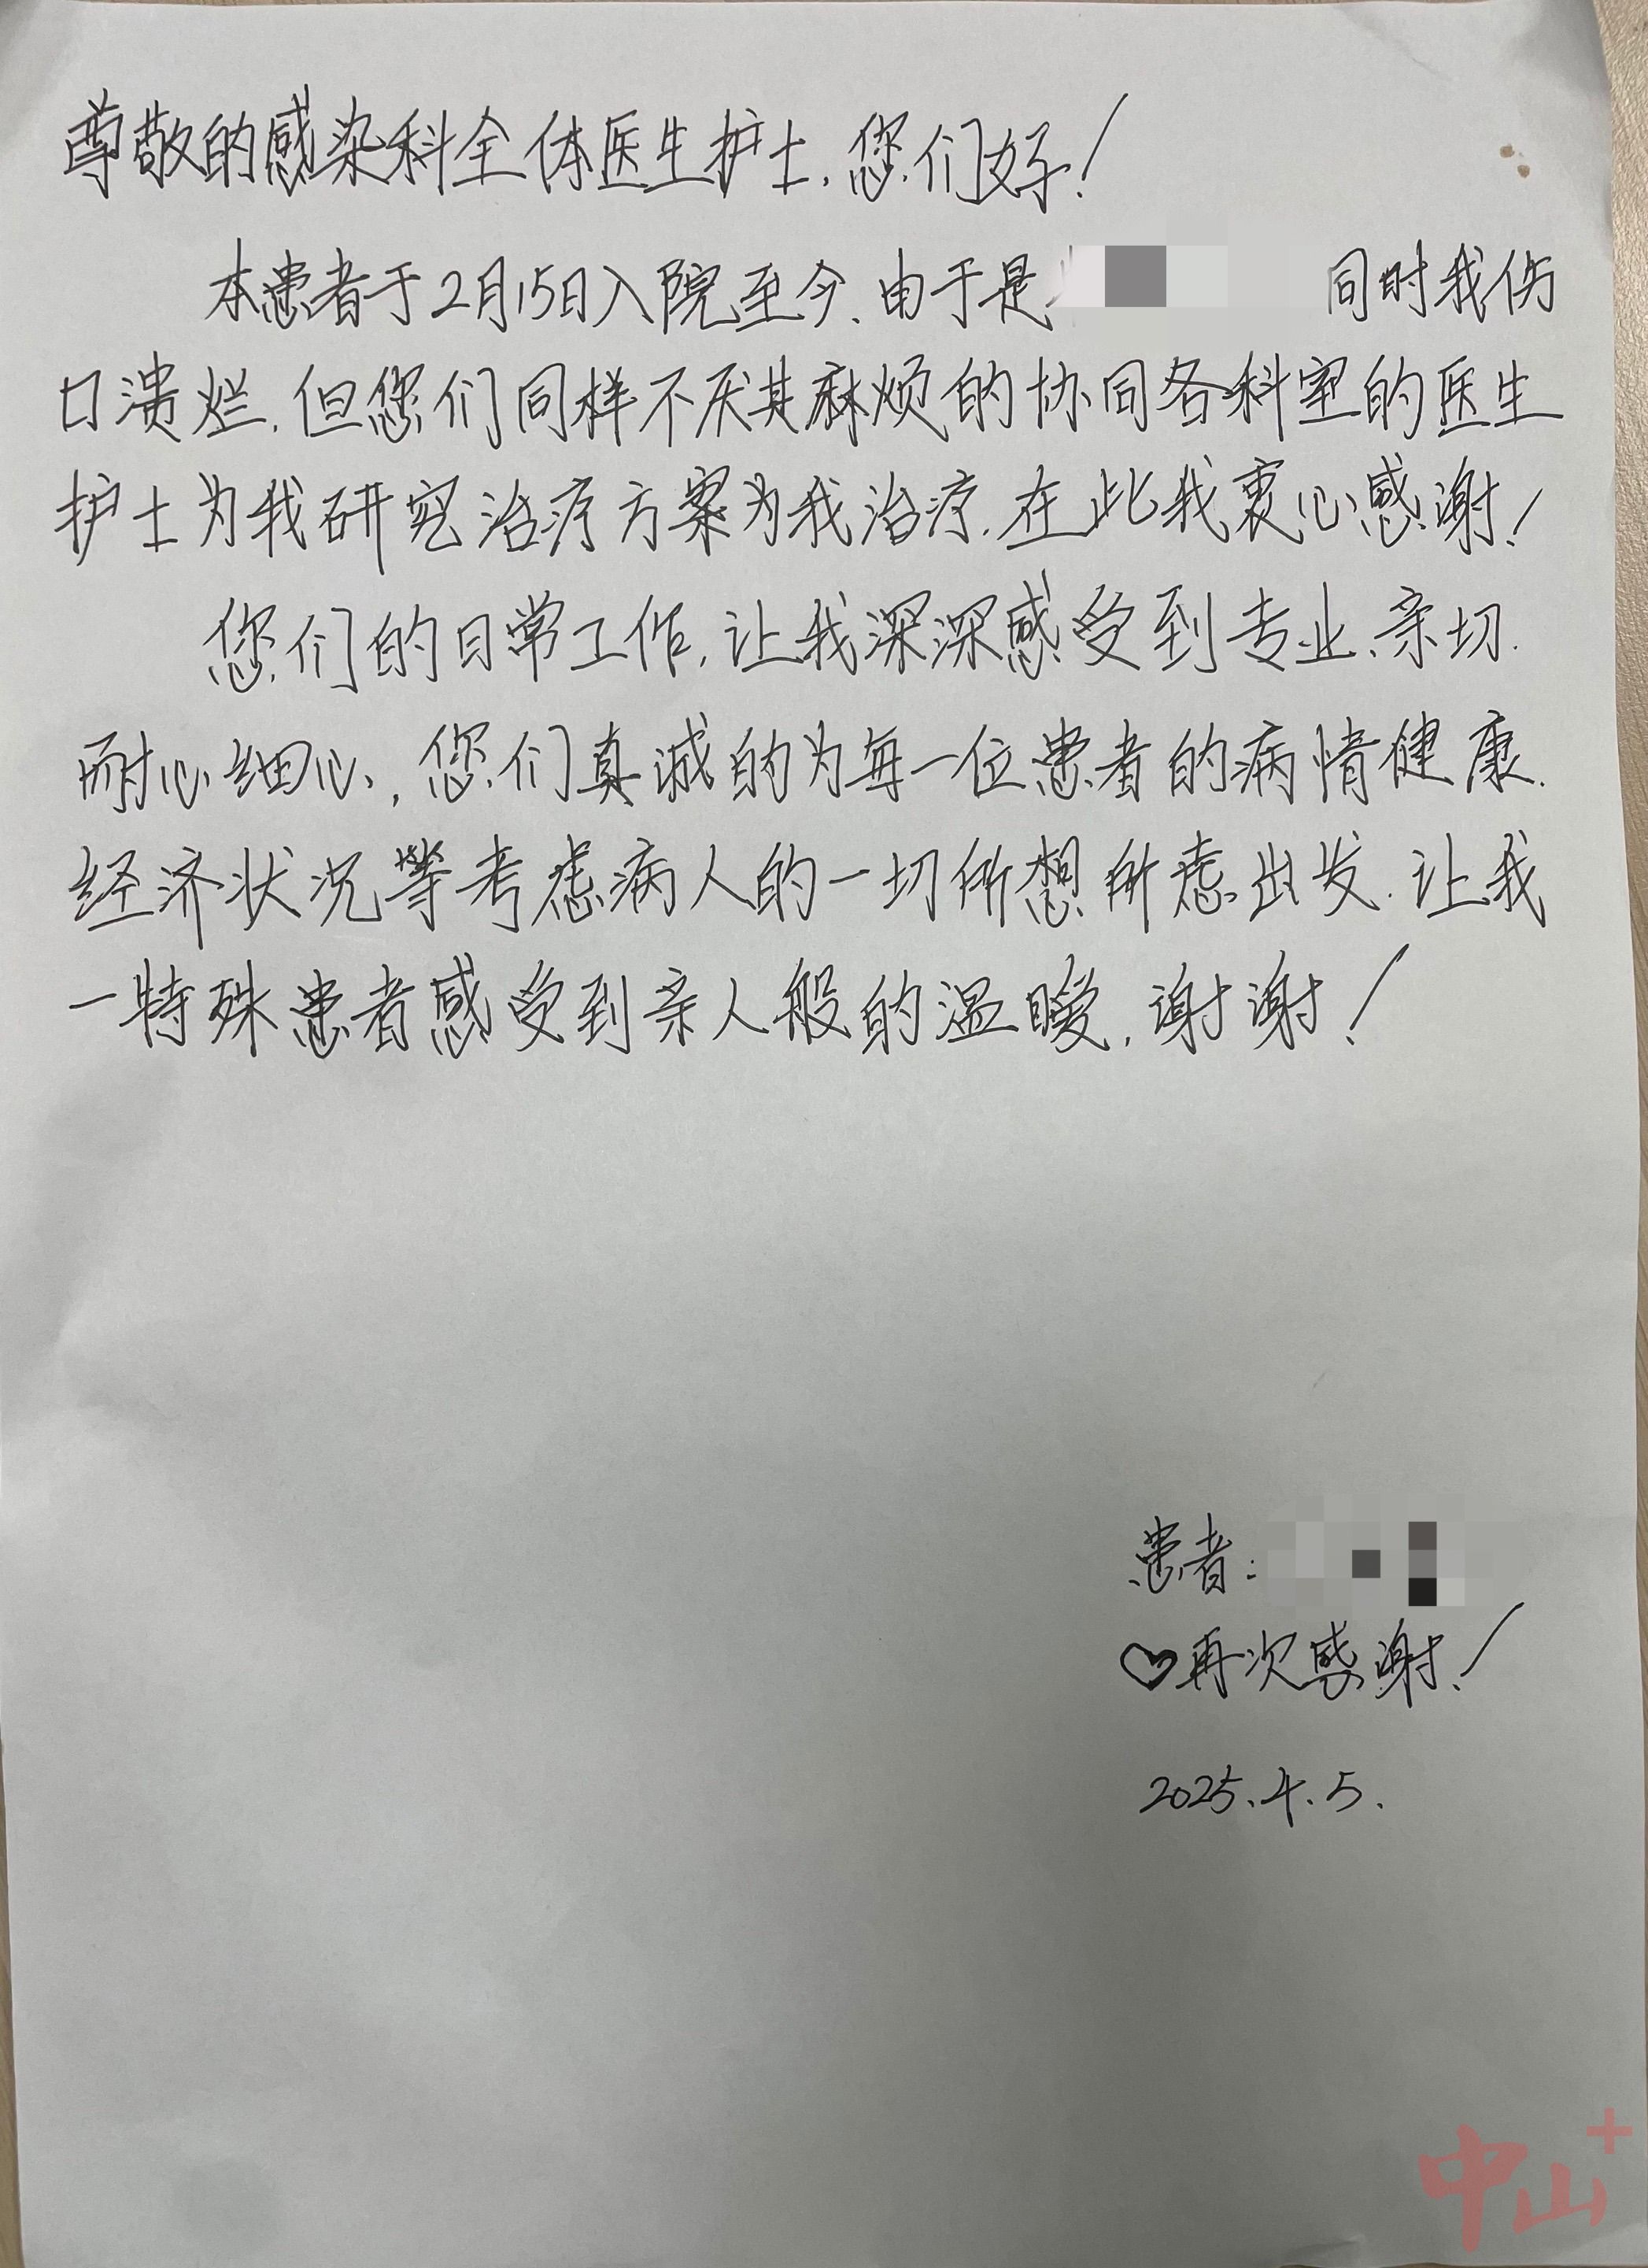 尊敬的感染科全体医生护士,您们好!
本患者于2月15日入院至今、由于是 同时我伤
口溃烂,但您们同样不厌其麻烦的协同各科室的医生
护士为我研究治疗方案为我治疗,在此我衷心感谢!
您们的日常工作,让我深深感受到专业、亲切、
耐心细心,您们真诚的为每一位患者的病情健康、
经济状况等考虑病人的一切所想所虑出发,让我
一特殊患者感受到亲人般的温暖,谢谢!
患者:
♡再次感谢!
2025.4.5.
中山+